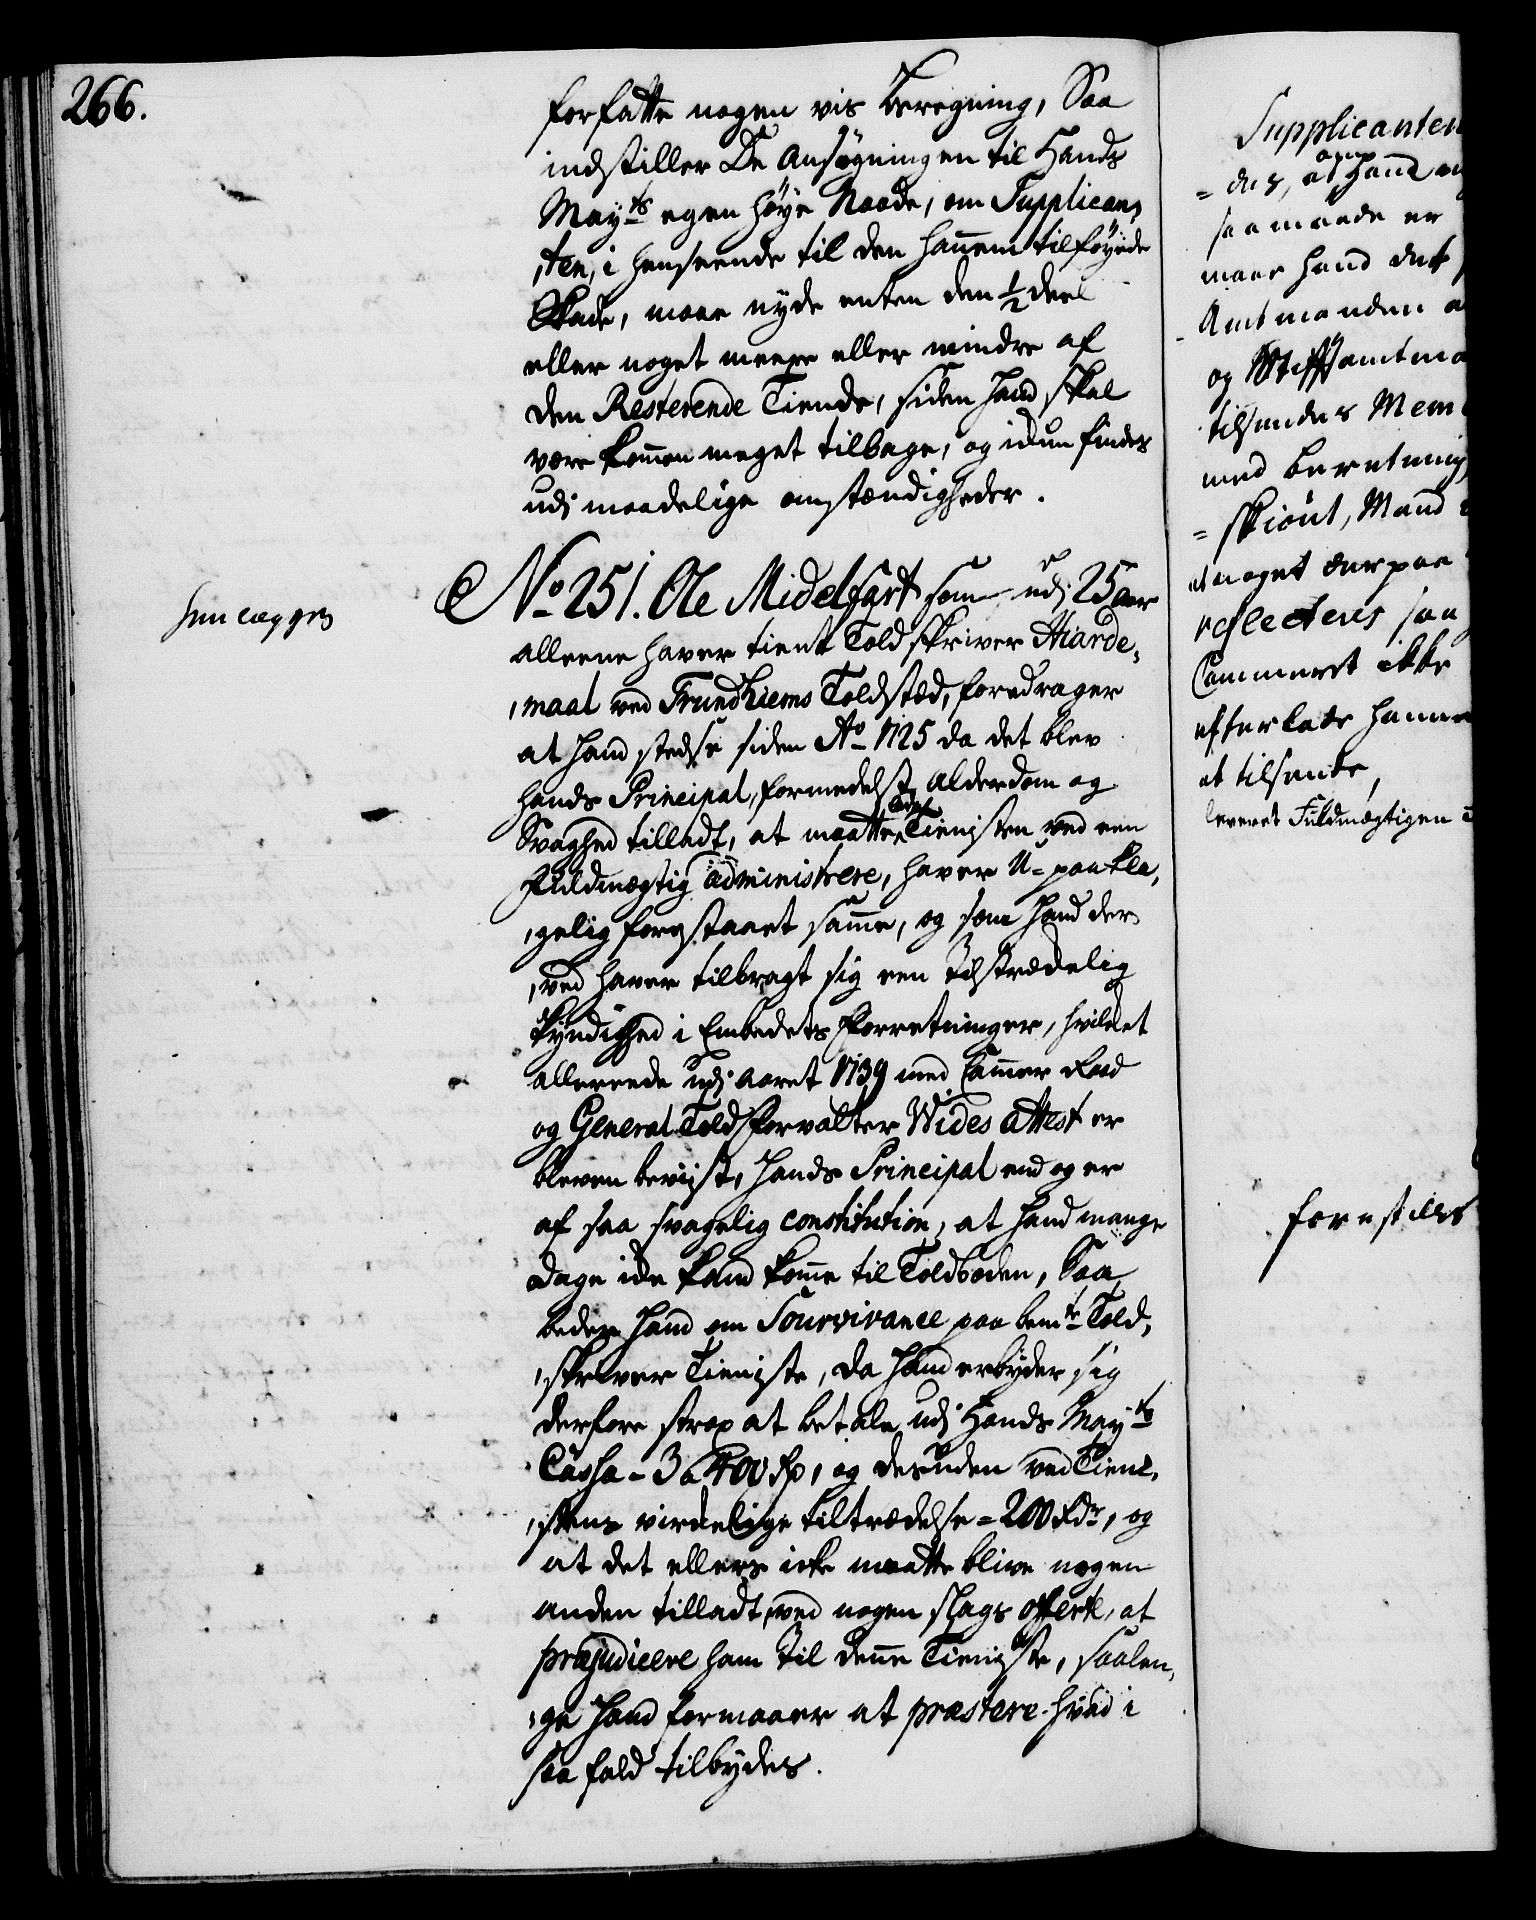 266.
forfatte nogen vis beregning, Saa
indstiller De ansøgningen til Hands
Mayts egen høye Naade, om Supplican,
,ten, i henseende til den hannem tilføyede
Skade, maae nyde enten den 1/2 deel
eller noget meere eller mindre af
den Resterende Tiende, siden hand skal
være kommen meget tilbage, og iden findes
udi maadelige omstændigheder.
henlægges
No 251. Ole Midelfart som udi 25 aar
alleene haver tient Toldskriver Hiarde,
,maal ved Trundhiems Toldsted, foredrager
at hand stedse siden Ao 1725 da det blev
hands Principal, formedelst Alderdom og
Svaghed tilladt, at maatte lade Tienisten ved een
Fuldmægtig administrere, haver U-paakla,
,gelig forestaaet samme, og som hand der,
,ved haver tilbragt sig een tilstrædelig
kyndighed i Embedets Forretninger, hvilket
allereede udi aaret 1739 med Cammer Raad
og General Toldforvalter Wides attest er
bleven beviist, hands Principal end og er
af saa svagelig constitution, at hand mange
Dage icke kand komme til Toldboden, Saa
beder hand om Sourvivance paa bemte Told,
,skriver Tieniste, da hand erbyder sig
derfore strax at betale udi Hands Mayts
Cassa - 3 a 400 Rd, og desuden ved Tieni,
,stens virkelige tiltrædelse = 200 Rdr, og
at det ellers icke maatte blive nogen
anden tilladt, ved nogen slags offerte, at
præjudicere ham til denne Tieniste, saalen,
,ge hand formaaer at præstere hvad i
saa fald tilbydes.
Supplicanten
= des, at hand
saa maade er
maae hand det
Amtmanden
og Stiftsamtma
tilsendes Mem
med beretning
= skiønt, Mand
at noget derpaa
reflecteres saa
Cammeret ikke
efterlade hannem
at tilsende,
leveret Fuldmægtigen
forestilles